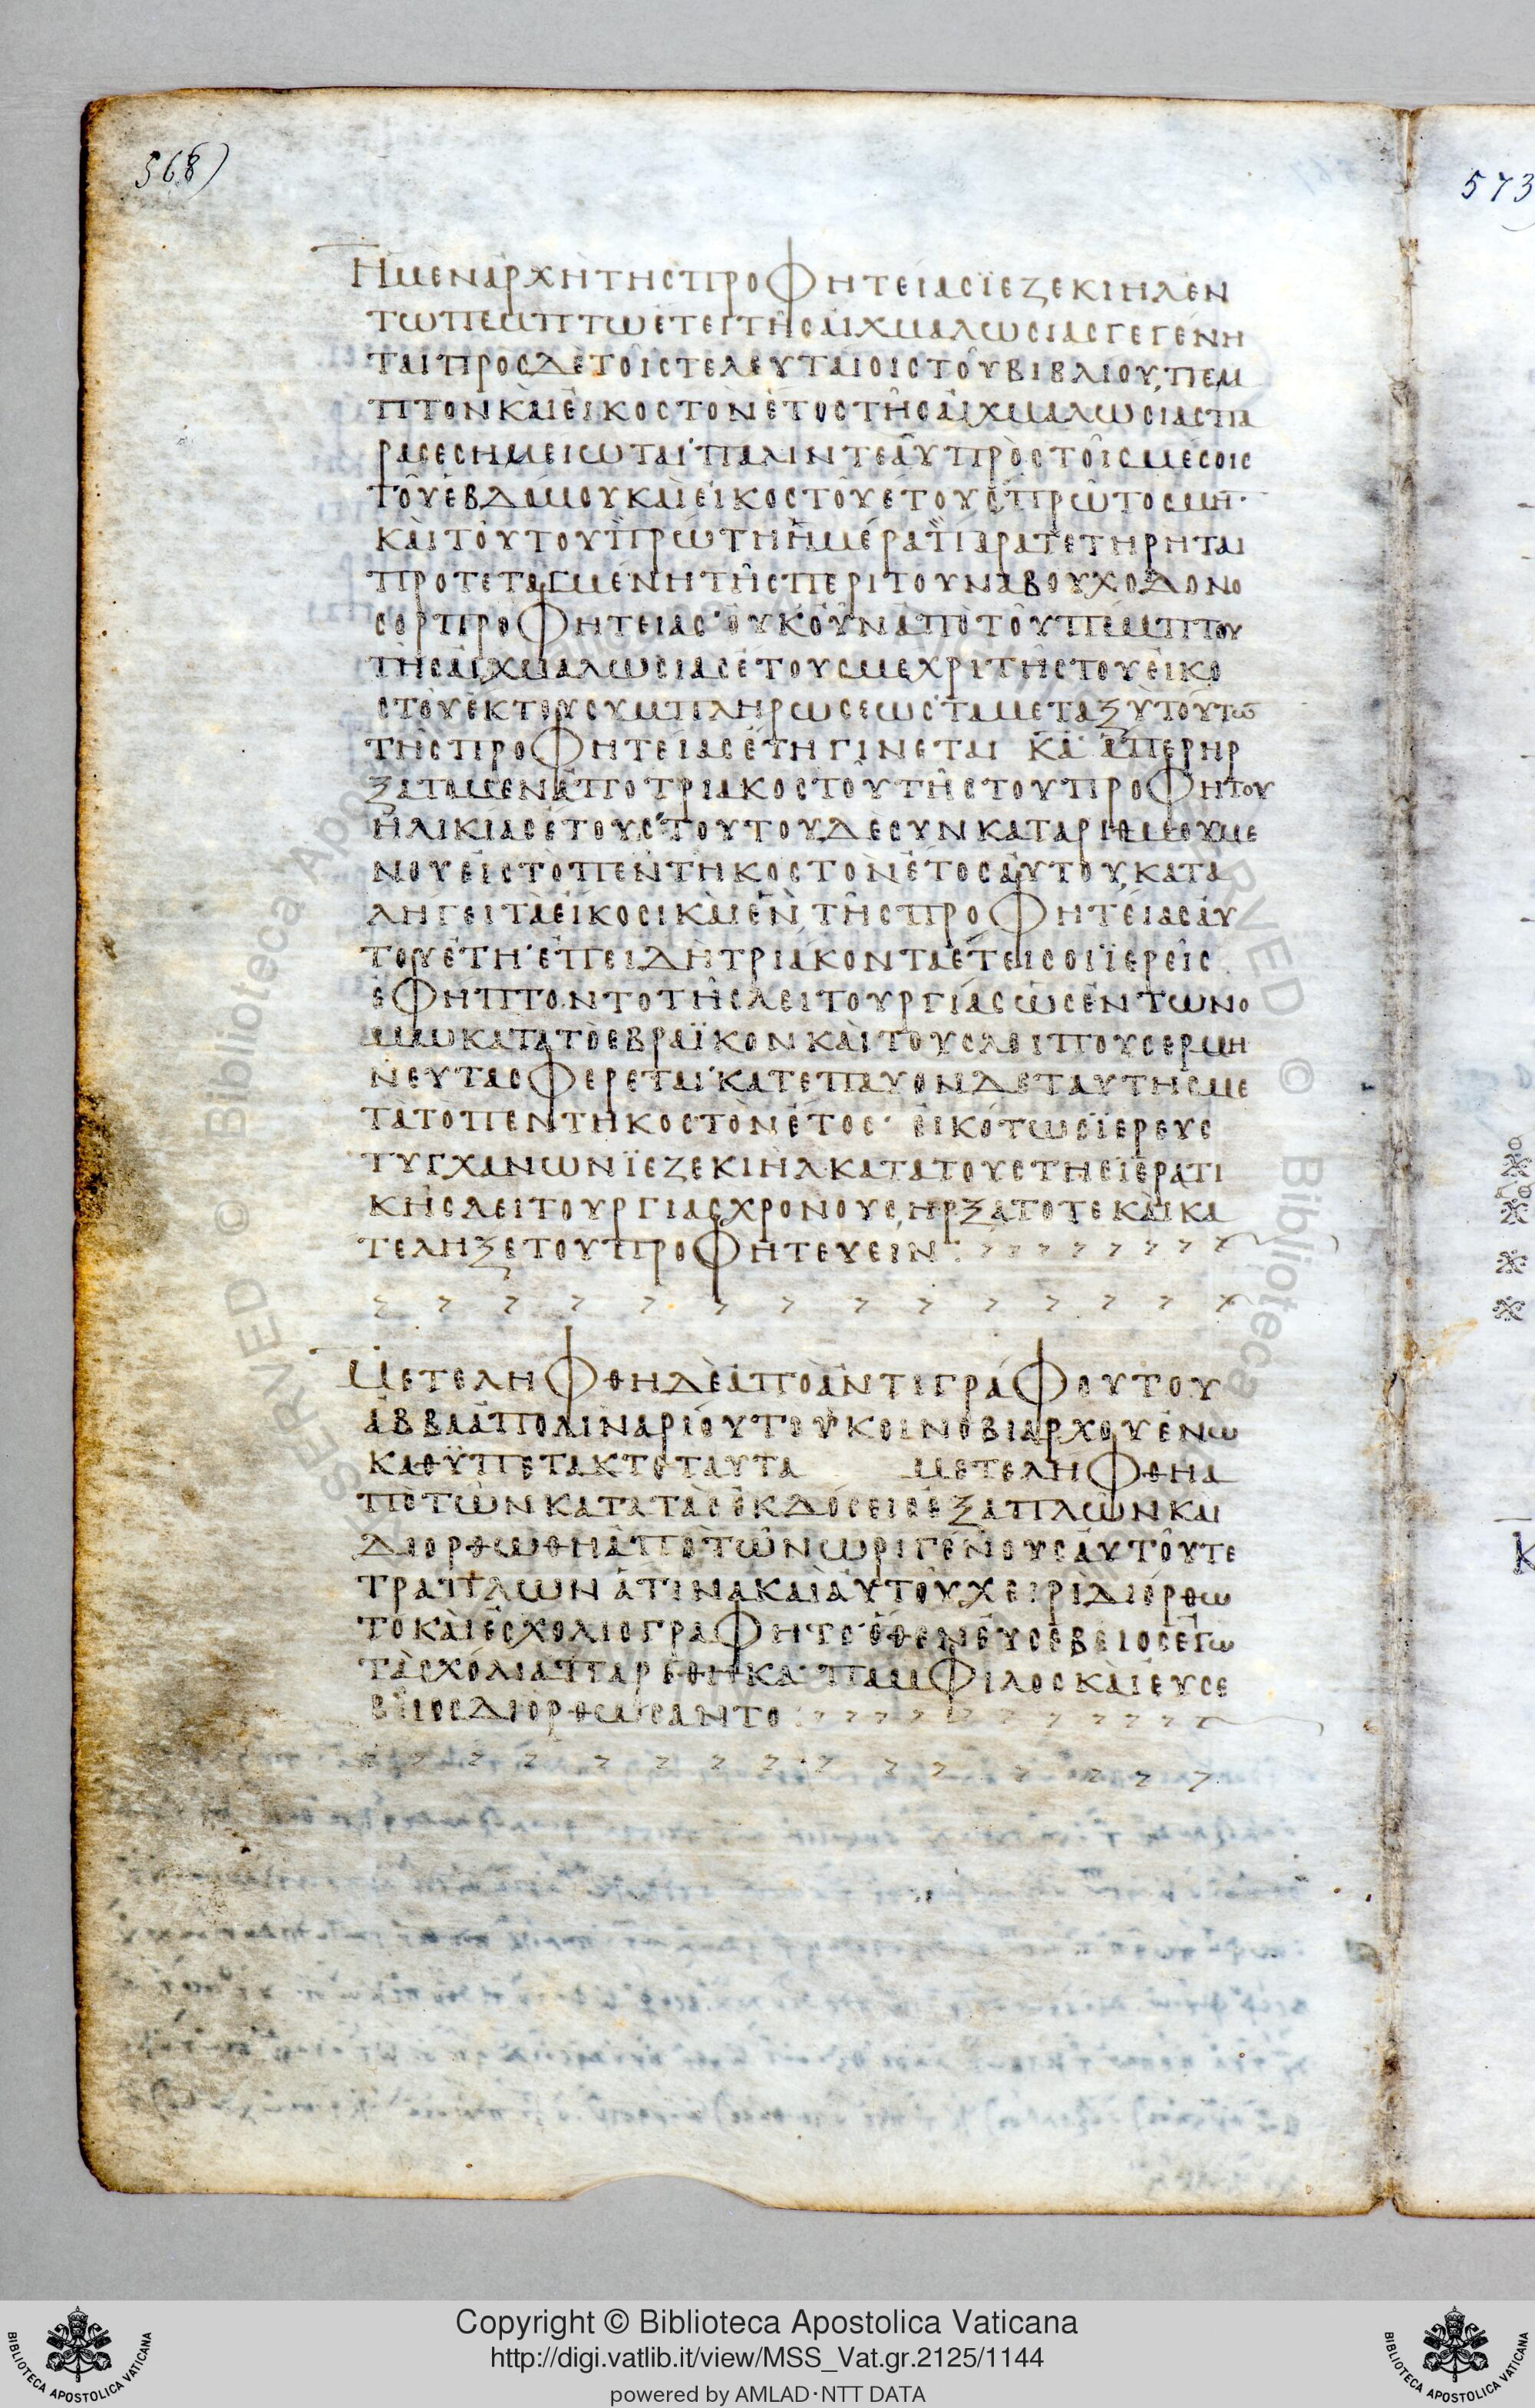 568)
573
ἩΜΕΝΑΡΧΗΤΗΣΠΡΟΦΗΤΕΙΑΣΪΕΖΕΚΙΗΛΕΝ
ΤΩΠΕΜΠΤΩΕΤΕΙΤΗΣΑΙΧΜΑΛΩΣΙΑΣΓΕΓΕΝΗ
ΤΑΙΠΡΟΣΔΕΤΟΙΣΤΕΛΕΥΤΑΙΟΙΣΤΟΥΒΙΒΛΙΟΥ,ΠΕΜ
ΠΤΟΝΚΑΙΕΙΚΟΣΤΟΝΕΤΟΣΤΗΣΑΙΧΜΑΛΩΣΙΑΣΠΑ
ΡΑΣΕΣΗΜΕΙΩΤΑΙ·ΠΑΛΙΝΤΕΑΥΠΡΟΣΤΟΙΣΜΕΣΟΙΣ
ΤΟΥΕΒΔΟΜΟΥΚΑΙΕΙΚΟΣΤΟΥΕΤΟΥΣΠΡΩΤΟΣΜΗ·
ΚΑΙΤΟΥΤΟΥΠΡΩΤΗΗΜΕΡΑΠΑΡΑΤΕΤΗΡΗΤΑΙ
ΠΡΟΤΕΤΑΓΜΕΝΗΤΗΣΠΕΡΙΤΟΥΝΑΒΟΥΧΟΔΟΝΟ
ΣΟΡΠΡΟΦΗΤΕΙΑΣ·ΟΥΚΟΥΝΑΠΟΤΟΥΠΕΜΠΤΟΥ
ΤΗΣΑΙΧΜΑΛΩΣΙΑΣΕΤΟΥΣΜΕΧΡΙΤΗΣΤΟΥΕΙΚΟ
ΣΤΟΥΕΚΤΟΥΣΥΜΠΛΗΡΩΣΕΩΣ·ΤΑΜΕΤΑΞΥΤΟΥΤΩ̅
ΤΗΣΠΡΟΦΗΤΕΙΑΣΕΤΗΓΙΝΕΤΑΙ ΚΑ· ΑΠΕΡΗΡ
ΞΑΤΟΜΕΝΑΠΟΤΡΙΑΚΟΣΤΟΥΤΗΣΤΟΥΠΡΟΦΗΤΟΥ
ΗΛΙΚΙΑΣΕΤΟΥΣ·ΤΟΥΤΟΥΔΕΣΥΝΚΑΤΑΡΙΘΜΟΥΜΕ
ΝΟΥΕΙΣΤΟΠΕΝΤΗΚΟΣΤΟΝΕΤΟΣΑΥΤΟΥ,ΚΑΤΑ
ΛΗΓΕΙΤΑΕΙΚΟΣΙΚΑΙΕΝ,ΤΗΣΠΡΟΦΗΤΕΙΑΣΑΥ
ΤΟΥΕΤΗ·ΕΠΕΙΔΗΤΡΙΑΚΟΝΤΑΕΤΕΙΣΟΙΪΕΡΕΙΣ
ΕΦΗΠΤΟΝΤΟΤΗΣΛΕΙΤΟΥΡΓΙΑΣΩΣΕΝΤΩΝΟ
ΜΩΚΑΤΑΤΟΕΒΡΑΪΚΟΝΚΑΙΤΟΥΣΛΟΙΠΟΥΣΕΡΜΗ
ΝΕΥΤΑΣΦΕΡΕΤΑΙ·ΚΑΤΕΠΑΥΟΝΔΕΤΑΥΤΗΣΜΕ
ΤΑΤΟΠΕΝΤΗΚΟΣΤΟΝΕΤΟΣ· ΕΙΚΟΤΩΣΪΕΡΕΥΣ
ΤΥΓΧΑΝΩΝΪΕΖΕΚΙΗΛΚΑΤΑΤΟΥΣΤΗΣΪΕΡΑΤΙ
ΚΗΣΛΕΙΤΟΥΡΓΙΑΣΧΡΟΝΟΥΣ,ΗΡΞΑΤΟΤΕΚΑΙΚΑ
ΤΕΛΗΞΕΤΟΥΠΡΟΦΗΤΕΥΕΙΝ:
ΜΕΤΕΛΗΦΘΗΔΕΑΠΟΑΝΤΙΓΡΑΦΟΥΤΟΥ
ΑΒΒΑΑΠΟΛΙΝΑΡΙΟΥΤΟΥΚΟΙΝΟΒΙΑΡΧΟΥΕΝΩ
ΚΑΘΫΠΕΤΑΚΤΟΤΑΥΤΑ ΜΕΤΕΛΗΦΘΗΑ
ΠΟΤΩΝΚΑΤΑΤΑΣΕΚΔΟΣΕΙΣΕΞΑΠΛΩΝΚΑΙ
ΔΙΟΡΘΩΘΗΑΠΟΤΩΝΩΡΙΓΕΝΟΥΣΑΥΤΟΥΤΕ
ΤΡΑΠΛΩΝ ΑΤΙΝΑΚΑΙΑΥΤΟΥΧΕΙΡΙΔΙΟΡΘΩ
ΤΟΚΑΙΕΣΧΟΛΙΟΓΡΑΦΗΤΟ·ΟΘΕΝΕΥΣΕΒΕΙΟΣΕΓΩ
ΤΑΣΧΟΛΙΑΠΑΡΕΘΗΚΑ·ΠΑΜΦΙΛΟΣΚΑΙΕΥΣΕ
ΒΕΙΟΣΔΙΟΡΘΩΣΑΝΤΟ:
Copyright © Biblioteca Apostolica Vaticana
http://digi.vatlib.it/view/MSS_Vat.gr.2125/1144
powered by AMLAD·NTT DATA
BIBLIOTECA APOSTOLICA VATICANA
BIBLIOTECA APOSTOLICA VATICANA